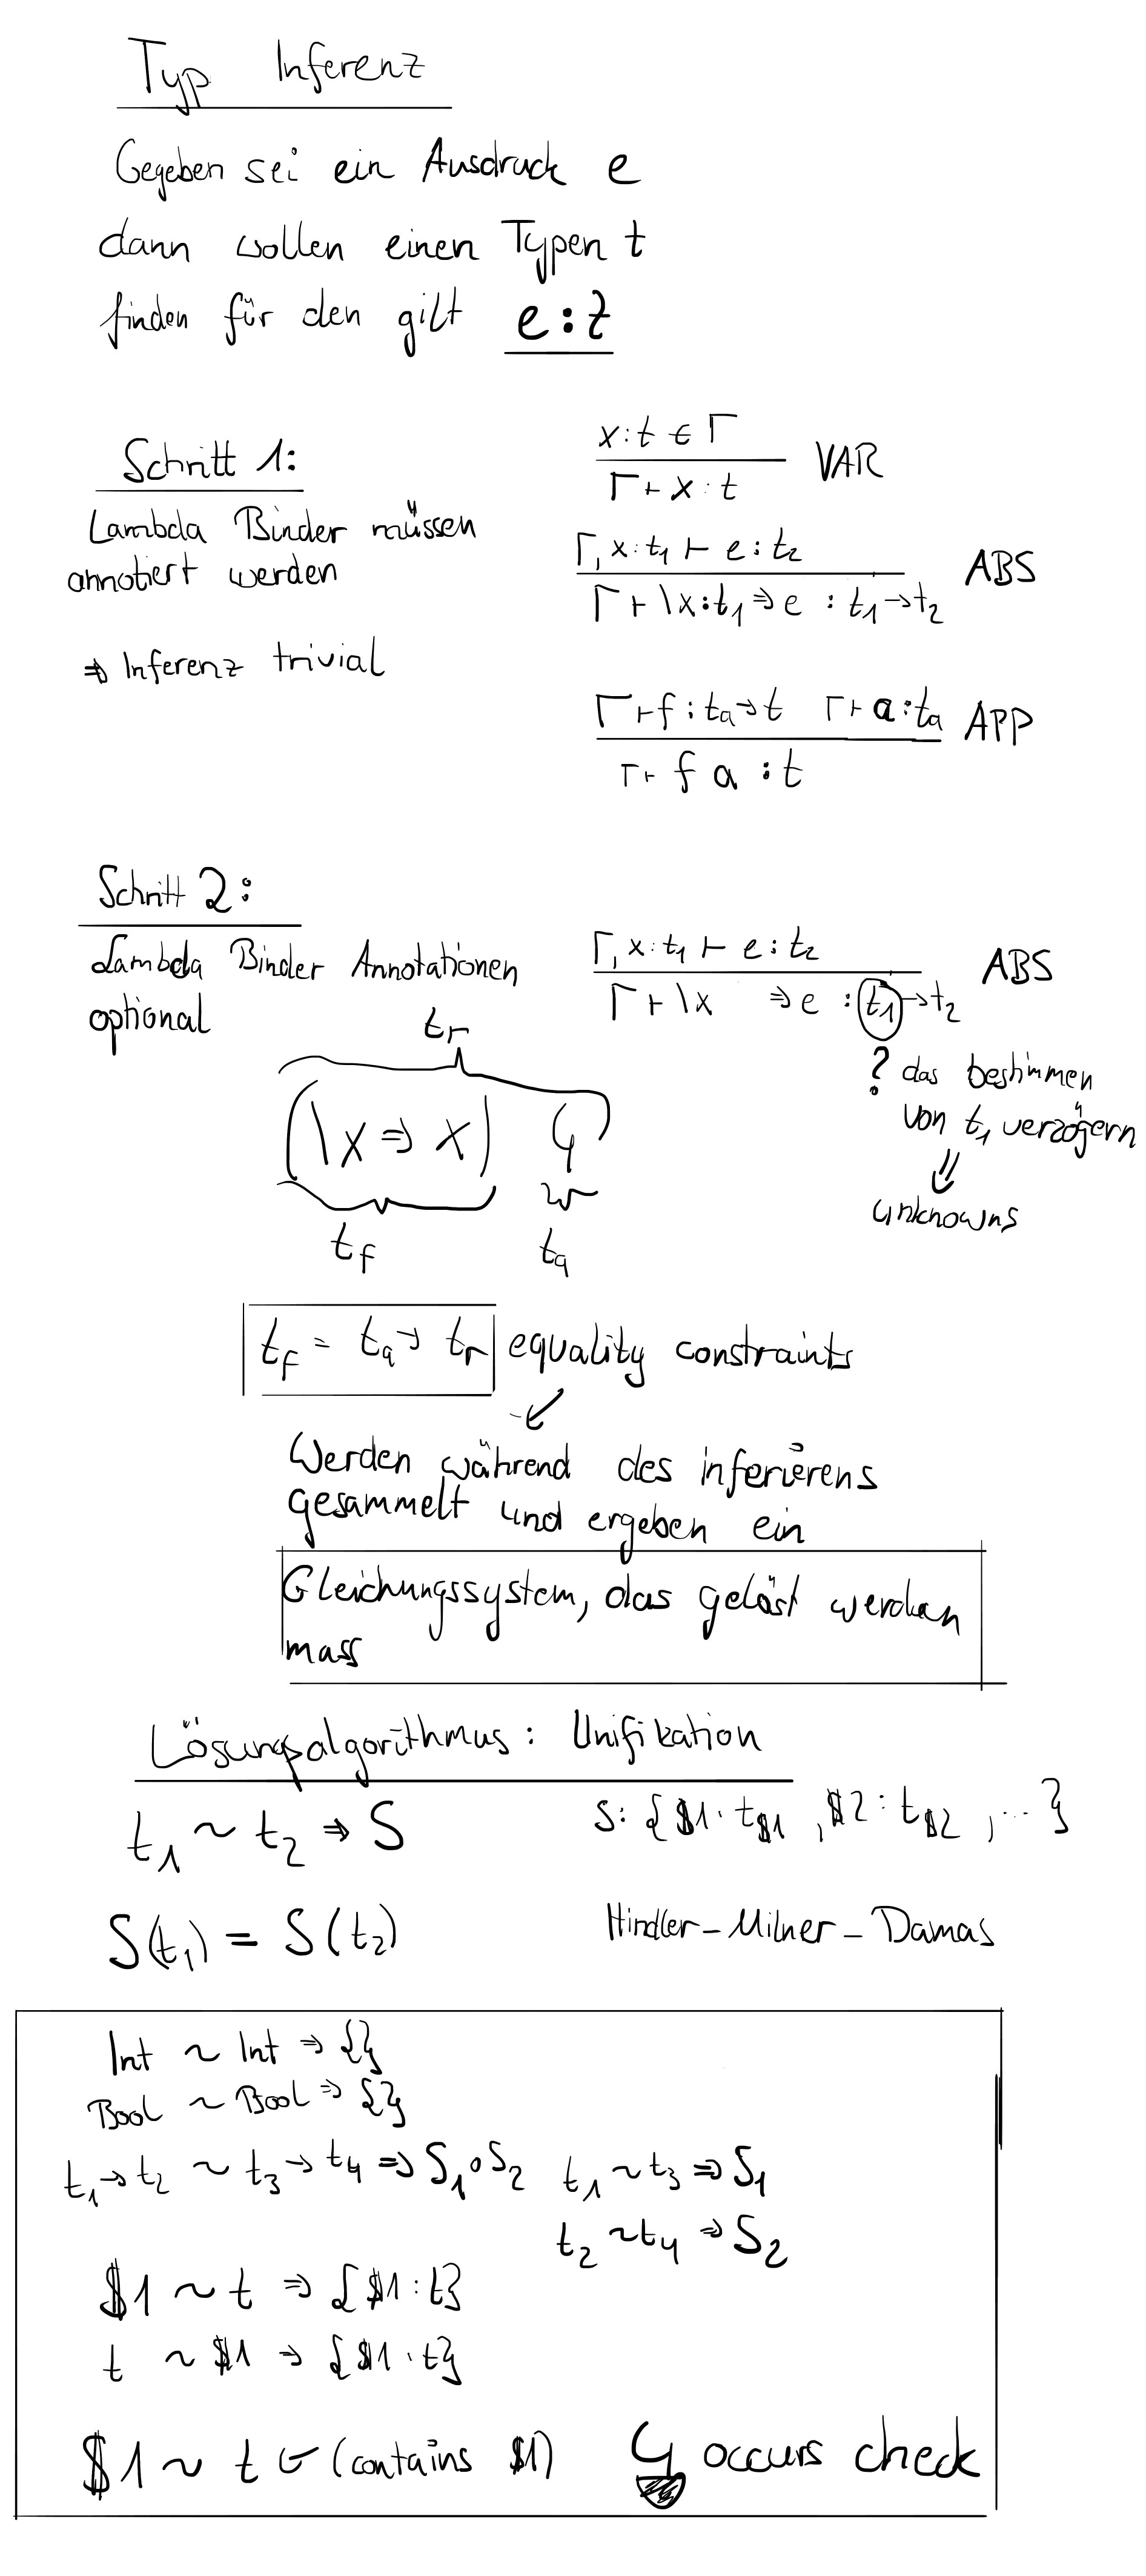 Typ Inferenz
Gegeben sei ein Ausdruck e
dann wollen einen Typen t
finden für den gilt e : t
Schritt 1:
Lambda Binder müssen
annotiert werden
⇒ Inferenz trivial
x : t ∈ Γ
Γ ⊢ x : t
VAR
Γ, x : t1 ⊢ e : t2
Γ ⊢ \x : t1 ⇒ e : t1 → t2
ABS
Γ ⊢ f : ta → t Γ ⊢ a : ta
Γ ⊢ f a : t
APP
Schritt 2:
Lambda Binder Annotationen
optional
Γ, x : t1 ⊢ e : t2
Γ ⊢ \x ⇒ e : t1 → t2
ABS
? das bestimmen
von t1 verzögern
⇓
unknowns
tr
(\x ⇒ x) 4
tf ta
tf = ta → tr equality constraints
Werden während des inferierens
gesammelt und ergeben ein
Gleichungssystem, das gelöst werden
mass
Lösungsalgorithmus: Unifikation
t1 ~ t2 ⇒ S
S: {$1 : t$1, $2 : t$2, ...}
S(t1) = S(t2)
Hindler-Milner-Damas
Int ~ Int ⇒ {}
Bool ~ Bool ⇒ {}
t1 → t2 ~ t3 → t4 ⇒ S1 ∘ S2 t1 ~ t3 ⇒ S1
t2 ~ t4 ⇒ S2
$1 ~ t ⇒ {$1 : t}
t ~ $1 ⇒ {$1 : t}
$1 ~ t ← (contains $1) occurs check